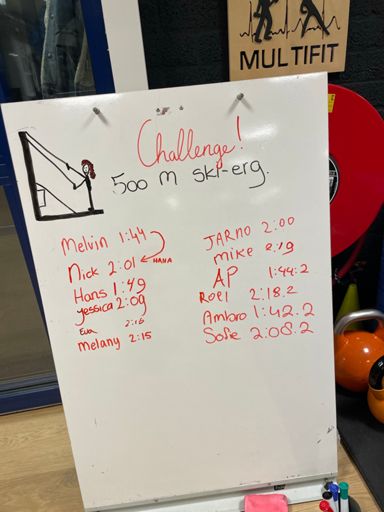 MULTIFIT
Challenge!
500 m ski-erg.
Melvin 1:44
Nick 2:01
HANA
Hans 1:49
Jessica 2:09
Eva 2:16
Melany 2:15
JARNO 2:00
mike 2:19
AP 1:44:2
Roel 2:18.2
Ambro 1:42.2
Sofie 2:08.2